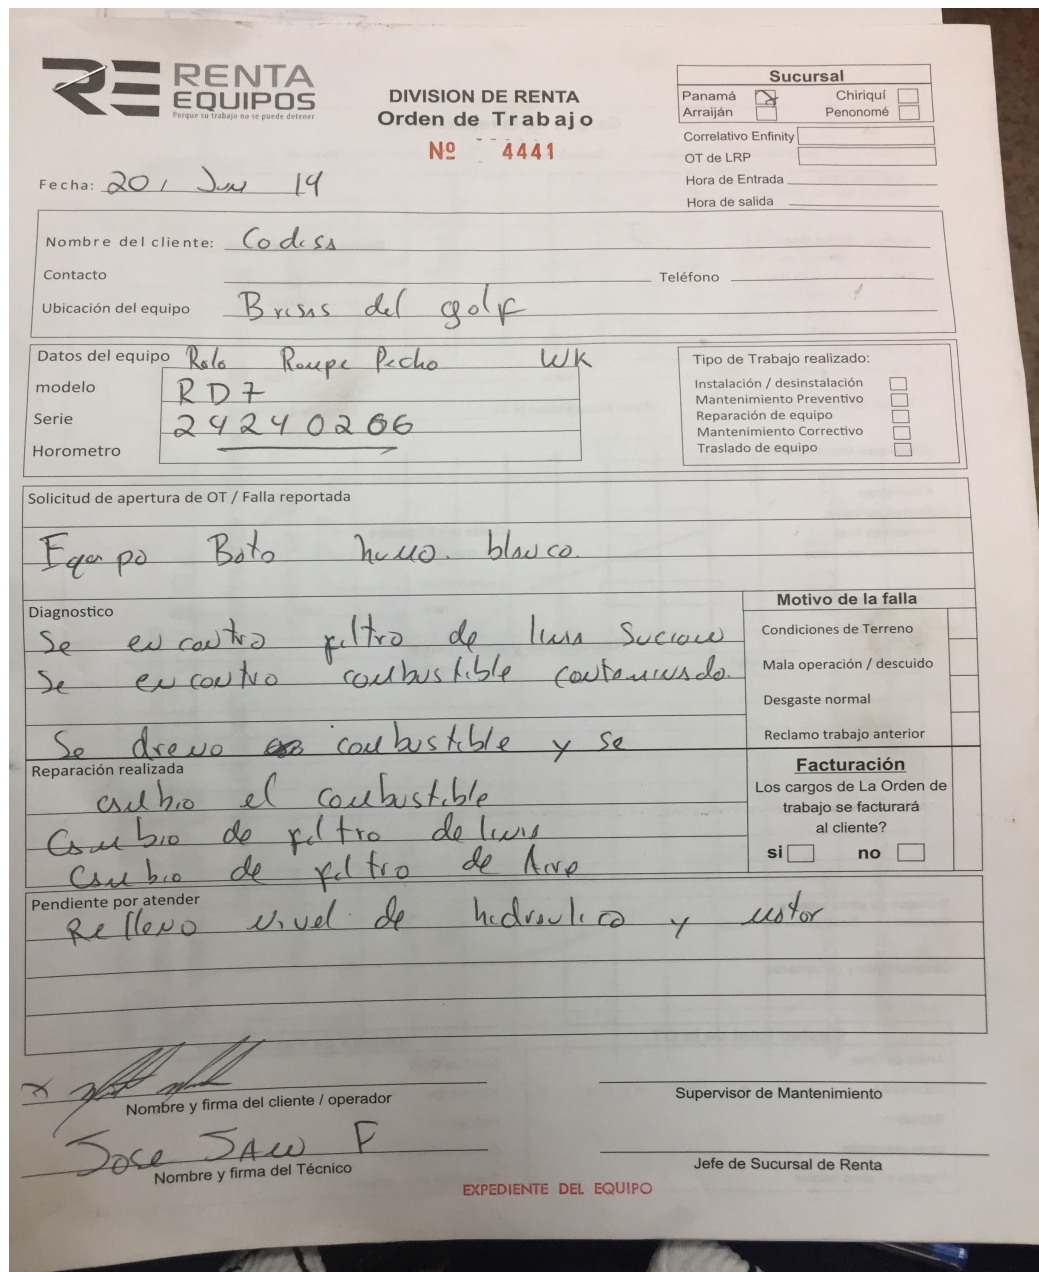 RENTA
EQUIPOS
Porque su trabajo no se puede detener
DIVISION DE RENTA
Orden de Trabajo
Nº 4441
Sucursal
Panamá Chiriquí
Arraiján Penonomé
Correlativo Enfinity
OT de LRP
Hora de Entrada
Hora de salida
Fecha: 20 / Jun 19
Nombre del cliente: Codesa
Contacto Teléfono
Ubicación del equipo Brisas del golf
Datos del equipo Rolo Rompe Pecho WK
modelo RD7
Serie 24240266
Horometro
Tipo de Trabajo realizado:
Instalación / desinstalación
Mantenimiento Preventivo
Reparación de equipo
Mantenimiento Correctivo
Traslado de equipo
Solicitud de apertura de OT / Falla reportada
Equipo Bota humo. blanco.
Diagnostico
Se encontro filtro de luis Sucion
Se encontro combustible contaminado.
Se dreno combustible y se
Motivo de la falla
Condiciones de Terreno
Mala operación / descuido
Desgaste normal
Reclamo trabajo anterior
Reparación realizada
cambio el combustible
Cambio de filtro de luis
Cambio de filtro de Aire
Facturación
Los cargos de La Orden de
trabajo se facturará
al cliente?
si no
Pendiente por atender
Relleno nivel de hidraulico y motor
Nombre y firma del cliente / operador
Supervisor de Mantenimiento
Jose
Nombre y firma del Técnico
Jefe de Sucursal de Renta
EXPEDIENTE DEL EQUIPO